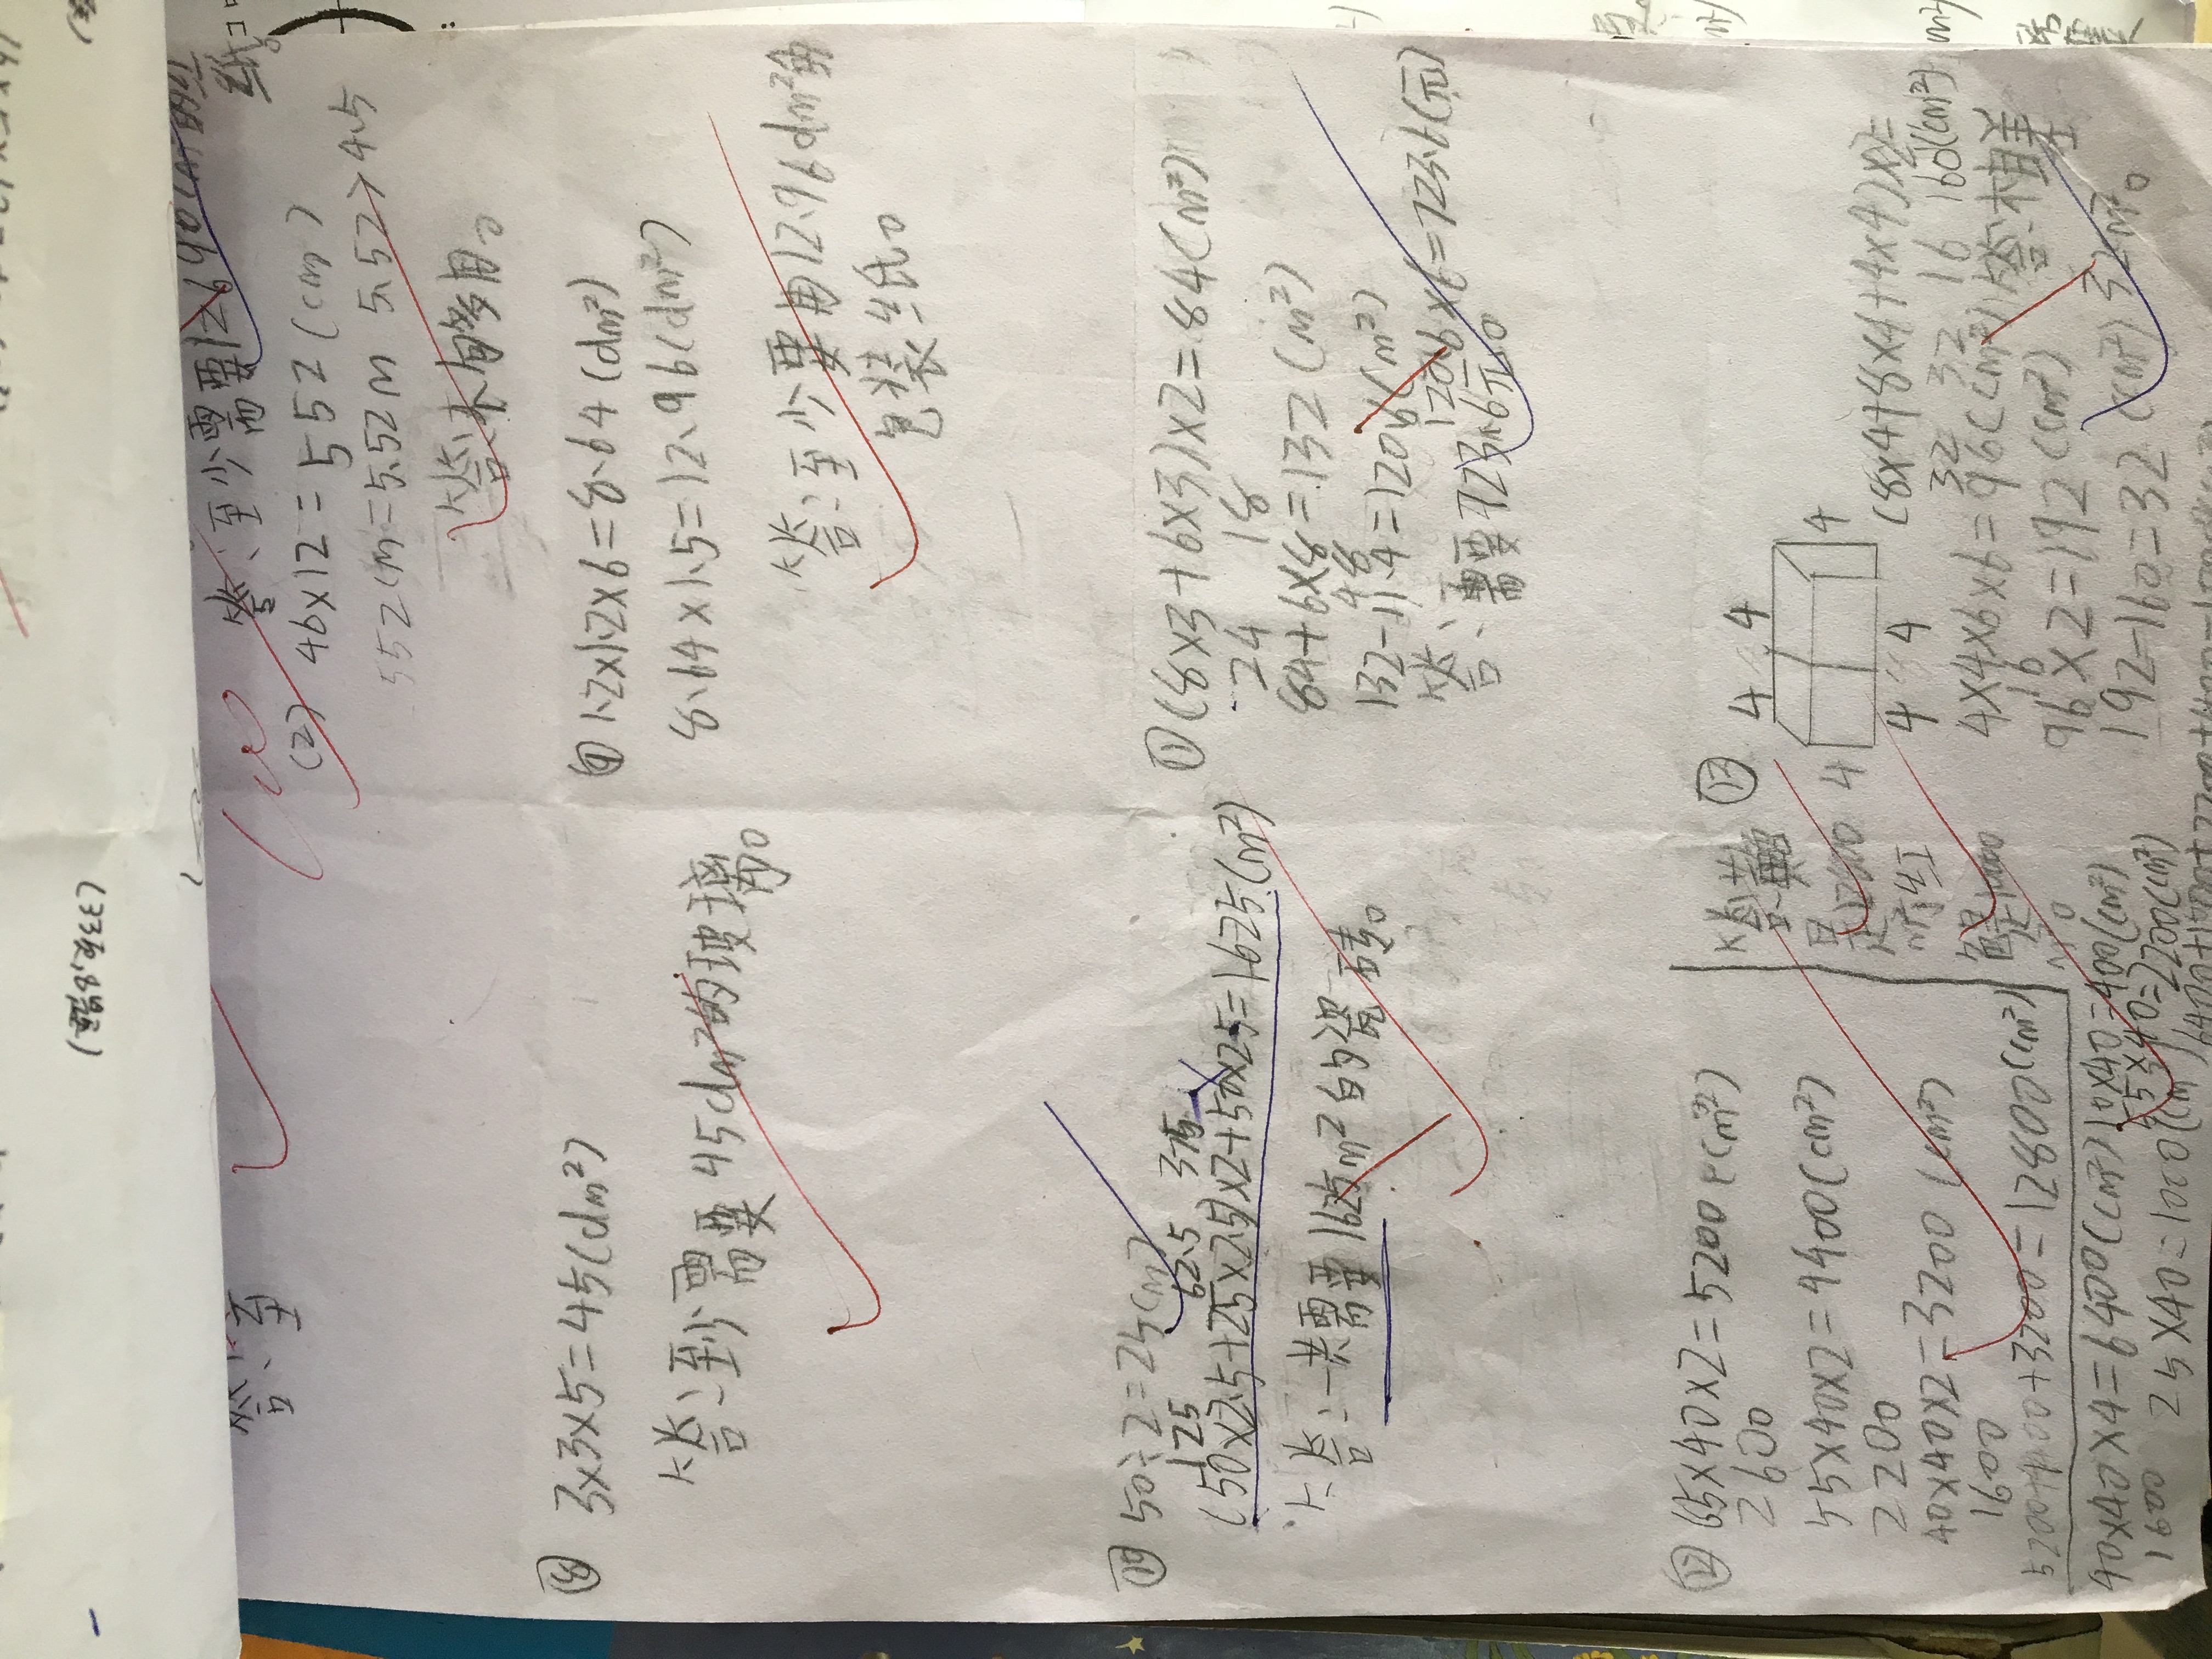 答:至少需要12690cm²的
纸。
(2) 46×12=552(cm)
552cm=5.52m 5.52>4.5
答:不够用。
答:至
⑧ 3×3×5=45(dm²)
答:至少需要45dm²的玻璃。
⑨ 1.2×1.2×6=8.64(dm²)
8.64×1.5=12.96(dm²)
答:至少要用12.96dm²的
包装纸。
⑩ 50÷2=25(m)
125 62.5
(50×2.5+25×2.5)×2+50×25=1625(m²)
答:一共需要1625m²的瓷砖。
⑪ (8×3+6×3)×2=84(m²)
24 18
84+6×8=132(m²)
48
132-11.4=120.6(m²)
120.6×6=723.6(元)
答:需要723.6元。
⑫ 65×40×2=5200(cm²)
2600
55×40×2=4400(cm²)
2200
40×40×2=3200(cm²)
1600
5200+4400+3200=12800(cm²)
40×40×4=6400(cm²)
1600
10×40=400(cm²)
25×40=1000(cm²)
55×40=2200(cm²)
答:黄
⑬
4 4
4
4
4 4
(8×4+8×4+4×4)×2=
32 32 16 160(cm²)
4×4×6=96(cm²)
16
96×2=192(cm²)
192-160=32(cm²)
答:相差
32cm²。
(33名,8组)